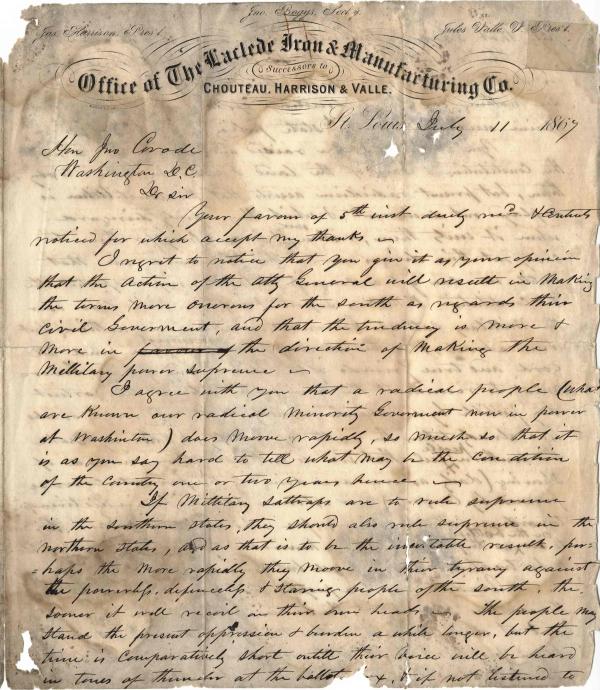 Jno. Baggs, Sect'y.
Jas. Harrison, Pres't. Jules Valle, V. Pres't.
Office of The Laclede Iron & Manufacturing Co.
Successors to
CHOUTEAU, HARRISON & VALLE.
St. Louis July 11 1867
Hon Jno Covode
Washington D.C.
Dr sir
Your favour of 5th inst duly recd & contents
noticed for which accept my thanks
I regret to notice that you give it as your opinion
that the action of the atty General will result in Making
the terms more onerous for the south as regards their
Civil Goverment, and that the tendency is more &
More in favour of the direction of Making the
Millitary power supreme
I agree with you that a radical people (what
are Known our radical Minority Goverment now in power
at Washinton) does Moove rapidly, so much so that it
is as you say hard to tell what may be the Condition
of the Country one or two years hence
If Millitary sattraps are to rule supreme
in the southern states, they should also rule supreme in the
northern states, and as that is to be the inevitable result, per-
=haps the More rapidly they Moove in their tyrany against
the powerless, defenceless & starving people of the south, the
sooner it will recoil on their own heads The people may
stand the present oppression & burden a while longer, but the
time is Comparatively short untill their voice will be heard
in tones of thunder at the ballot & if not listened to